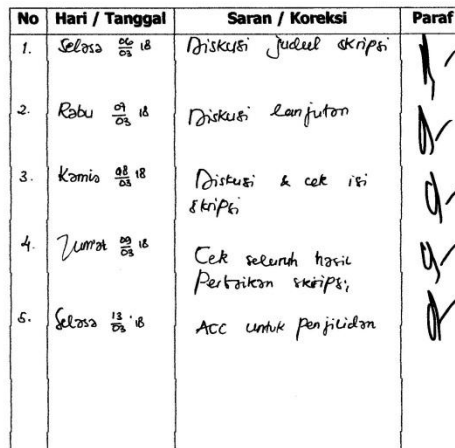 No Hari / Tanggal Saran / Koreksi Paraf
1. Selasa 06/03 18 Diskusi judul skripsi
2. Rabu 07/03 18 Diskusi lanjutan
3. Kamis 08/03 18 Diskusi & cek isi
skripsi
4. Jumat 09/03 18 Cek seluruh hasil
Perbaikan skripsi,
5. Selasa 13/03 '18 ACC untuk penjilidan